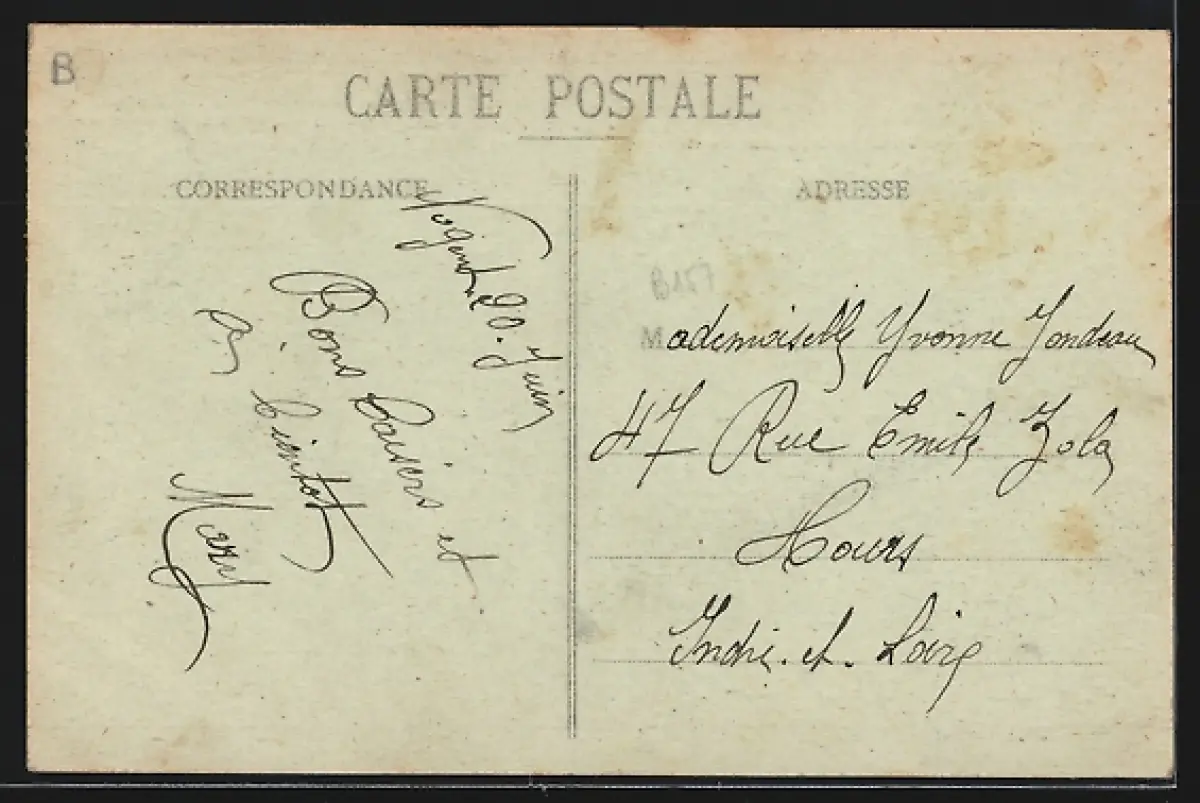 B
CARTE POSTALE
CORRESPONDANCE
Nogent 20. Juin
Bons baisers et
à bientot
ADRESSE
B157
Mademoiselle Yvonne Jondeau
47 Rue Emile Zola
Tours
Indre. et. Loire